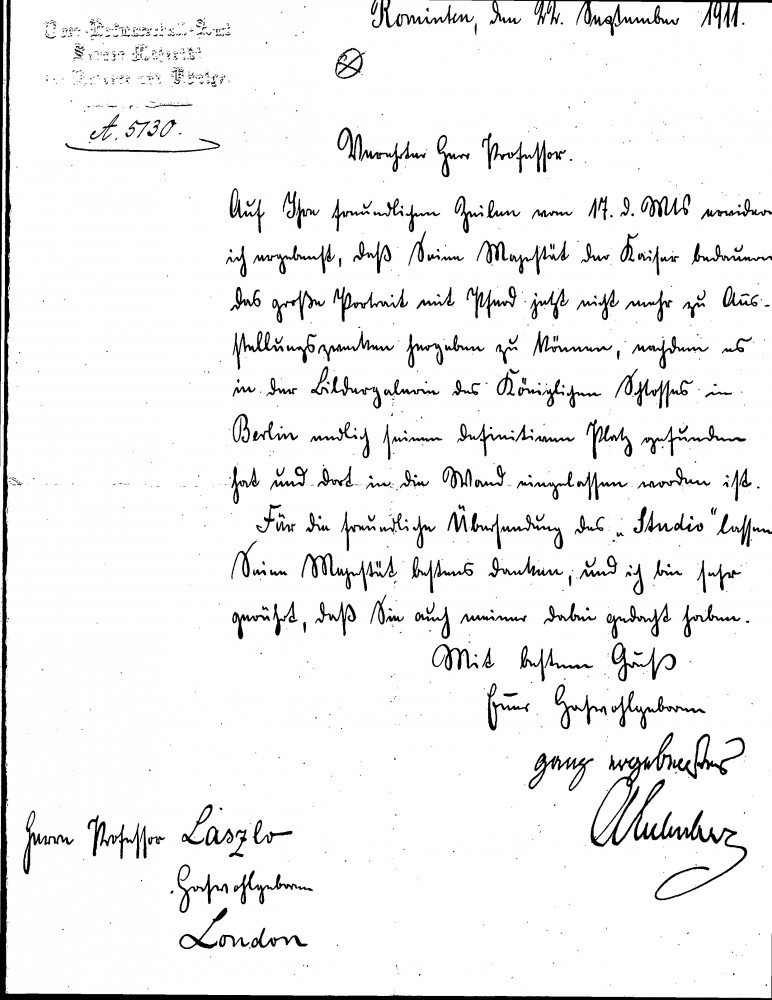 Rominten, den 22. September 1911.
Ober-Hofmarschall-Amt
Seiner Majestät
des Kaisers und Königs.
A. 5130.
Verehrter Herr Professor.
Auf Ihre freundlichen Zeilen vom 17. d. Mts erwidere
ich ergebenst, daß Seine Majestät der Kaiser bedauern
das große Portrait mit Pferd jetzt nicht mehr zu Aus-
stellungszwecken hergeben zu können, nachdem es
in der Bildergalerie des Königlichen Schlosses in
Berlin endlich seinen definitiven Platz gefunden
hat und dort in die Wand eingelassen worden ist.
Für die freundliche Übersendung des „Studio" lassen
Seine Majestät bestens danken, und ich bin sehr
gerührt, daß Sie auch meiner dabei gedacht haben.
Mit bestem Gruß
Euer Hochwohlgeboren
ganz ergebenster
AEulenburg
Herrn Professor László
Hochwohlgeboren
London